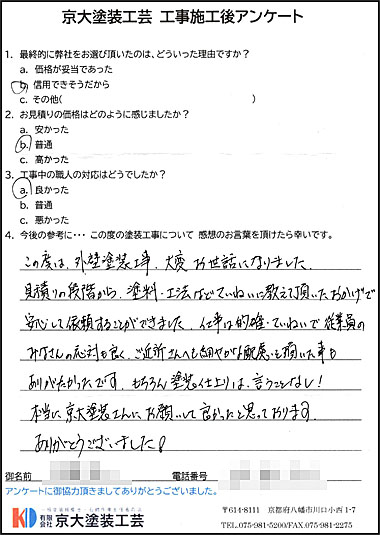 京大塗装工芸 工事施工後アンケート
1. 最終的に弊社をお選び頂いたのは、どういった理由ですか？
a. 価格が妥当であった
b. 信用できそうだから
c. その他(　　　)
2. お見積りの価格はどのように感じましたか？
a. 安かった
b. 普通
c. 高かった
3. 工事中の職人の対応はどうでしたか？
a. 良かった
b. 普通
c. 悪かった
4. 今後の参考に・・・ この度の塗装工事について 感想のお言葉を頂けたら幸いです。
この度は、外壁塗装工事、大変 お世話になりました。
見積りの段階から、塗料・工法などていねいに教えて頂いたおかげで
安心して依頼することができました。仕事は的確・ていねいで 従業員の
みなさんの応対も良く、ご近所さんへも細やかな配慮を頂いた事も
ありがたかったです。もちろん 塗装仕上りは、言うことなし！
本当に 京大塗装さんに お願いして良かったと思っております。
ありがとうございました！
御名前
電話番号
アンケートに御協力頂きましてありがとうございました。
KD 有限会社 京大塗装工芸
〒614-8111 京都府八幡市川口小西 1-7
TEL.075-981-5200/FAX.075-981-2275